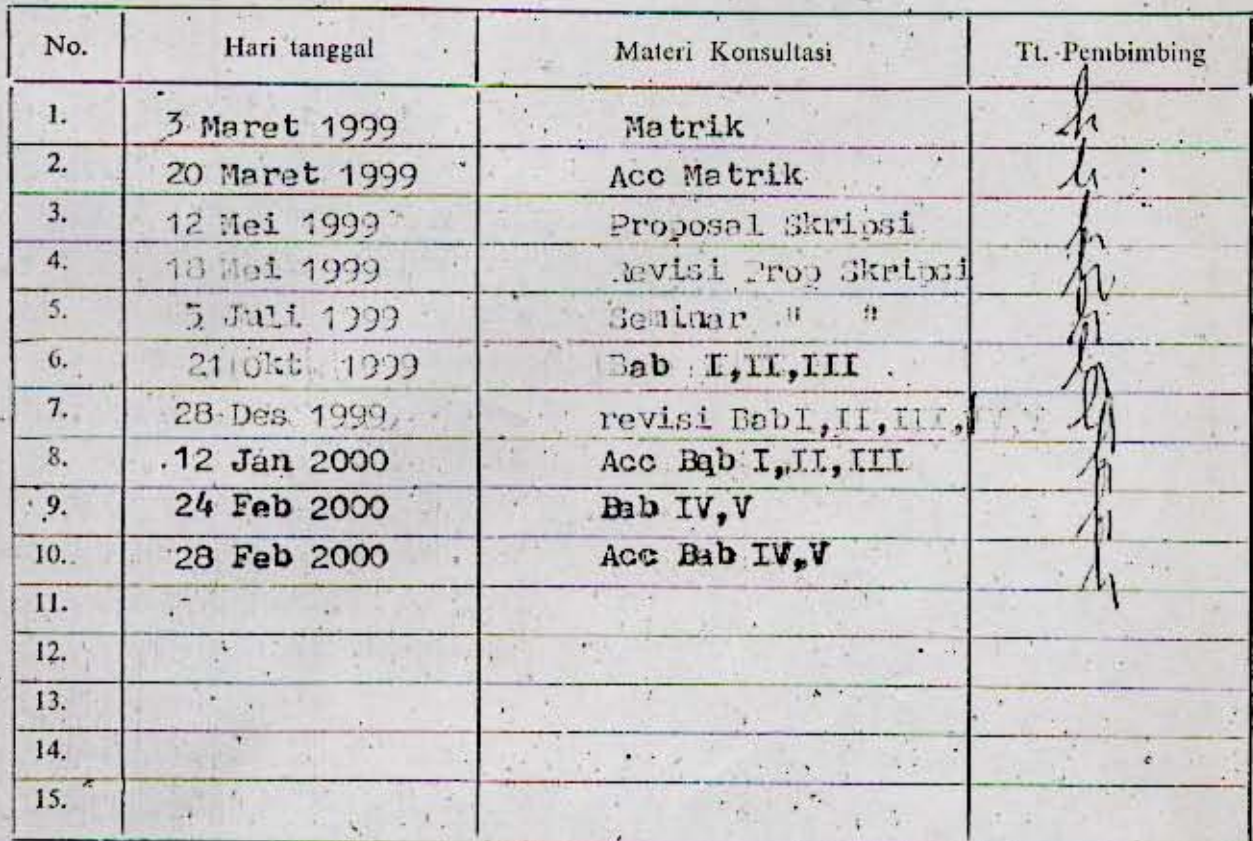 No. Hari tanggal Materi Konsultasi Tt. Pembimbing
1. 3 Maret 1999 Matrik
2. 20 Maret 1999 Acc Matrik
3. 12 Mei 1999 Proposal Skripsi
4. 18 Mei 1999 Revisi Prop Skripsi
5. 5 Juli 1999 Seminar " "
6. 21 Okt 1999 Bab I,II,III
7. 28 Des 1999 revisi BabI,II,III,IV,V
8. 12 Jan 2000 Acc Bqb I,II,III
9. 24 Feb 2000 Bab IV,V
10. 28 Feb 2000 Acc Bab IV,V
11.
12.
13.
14.
15.